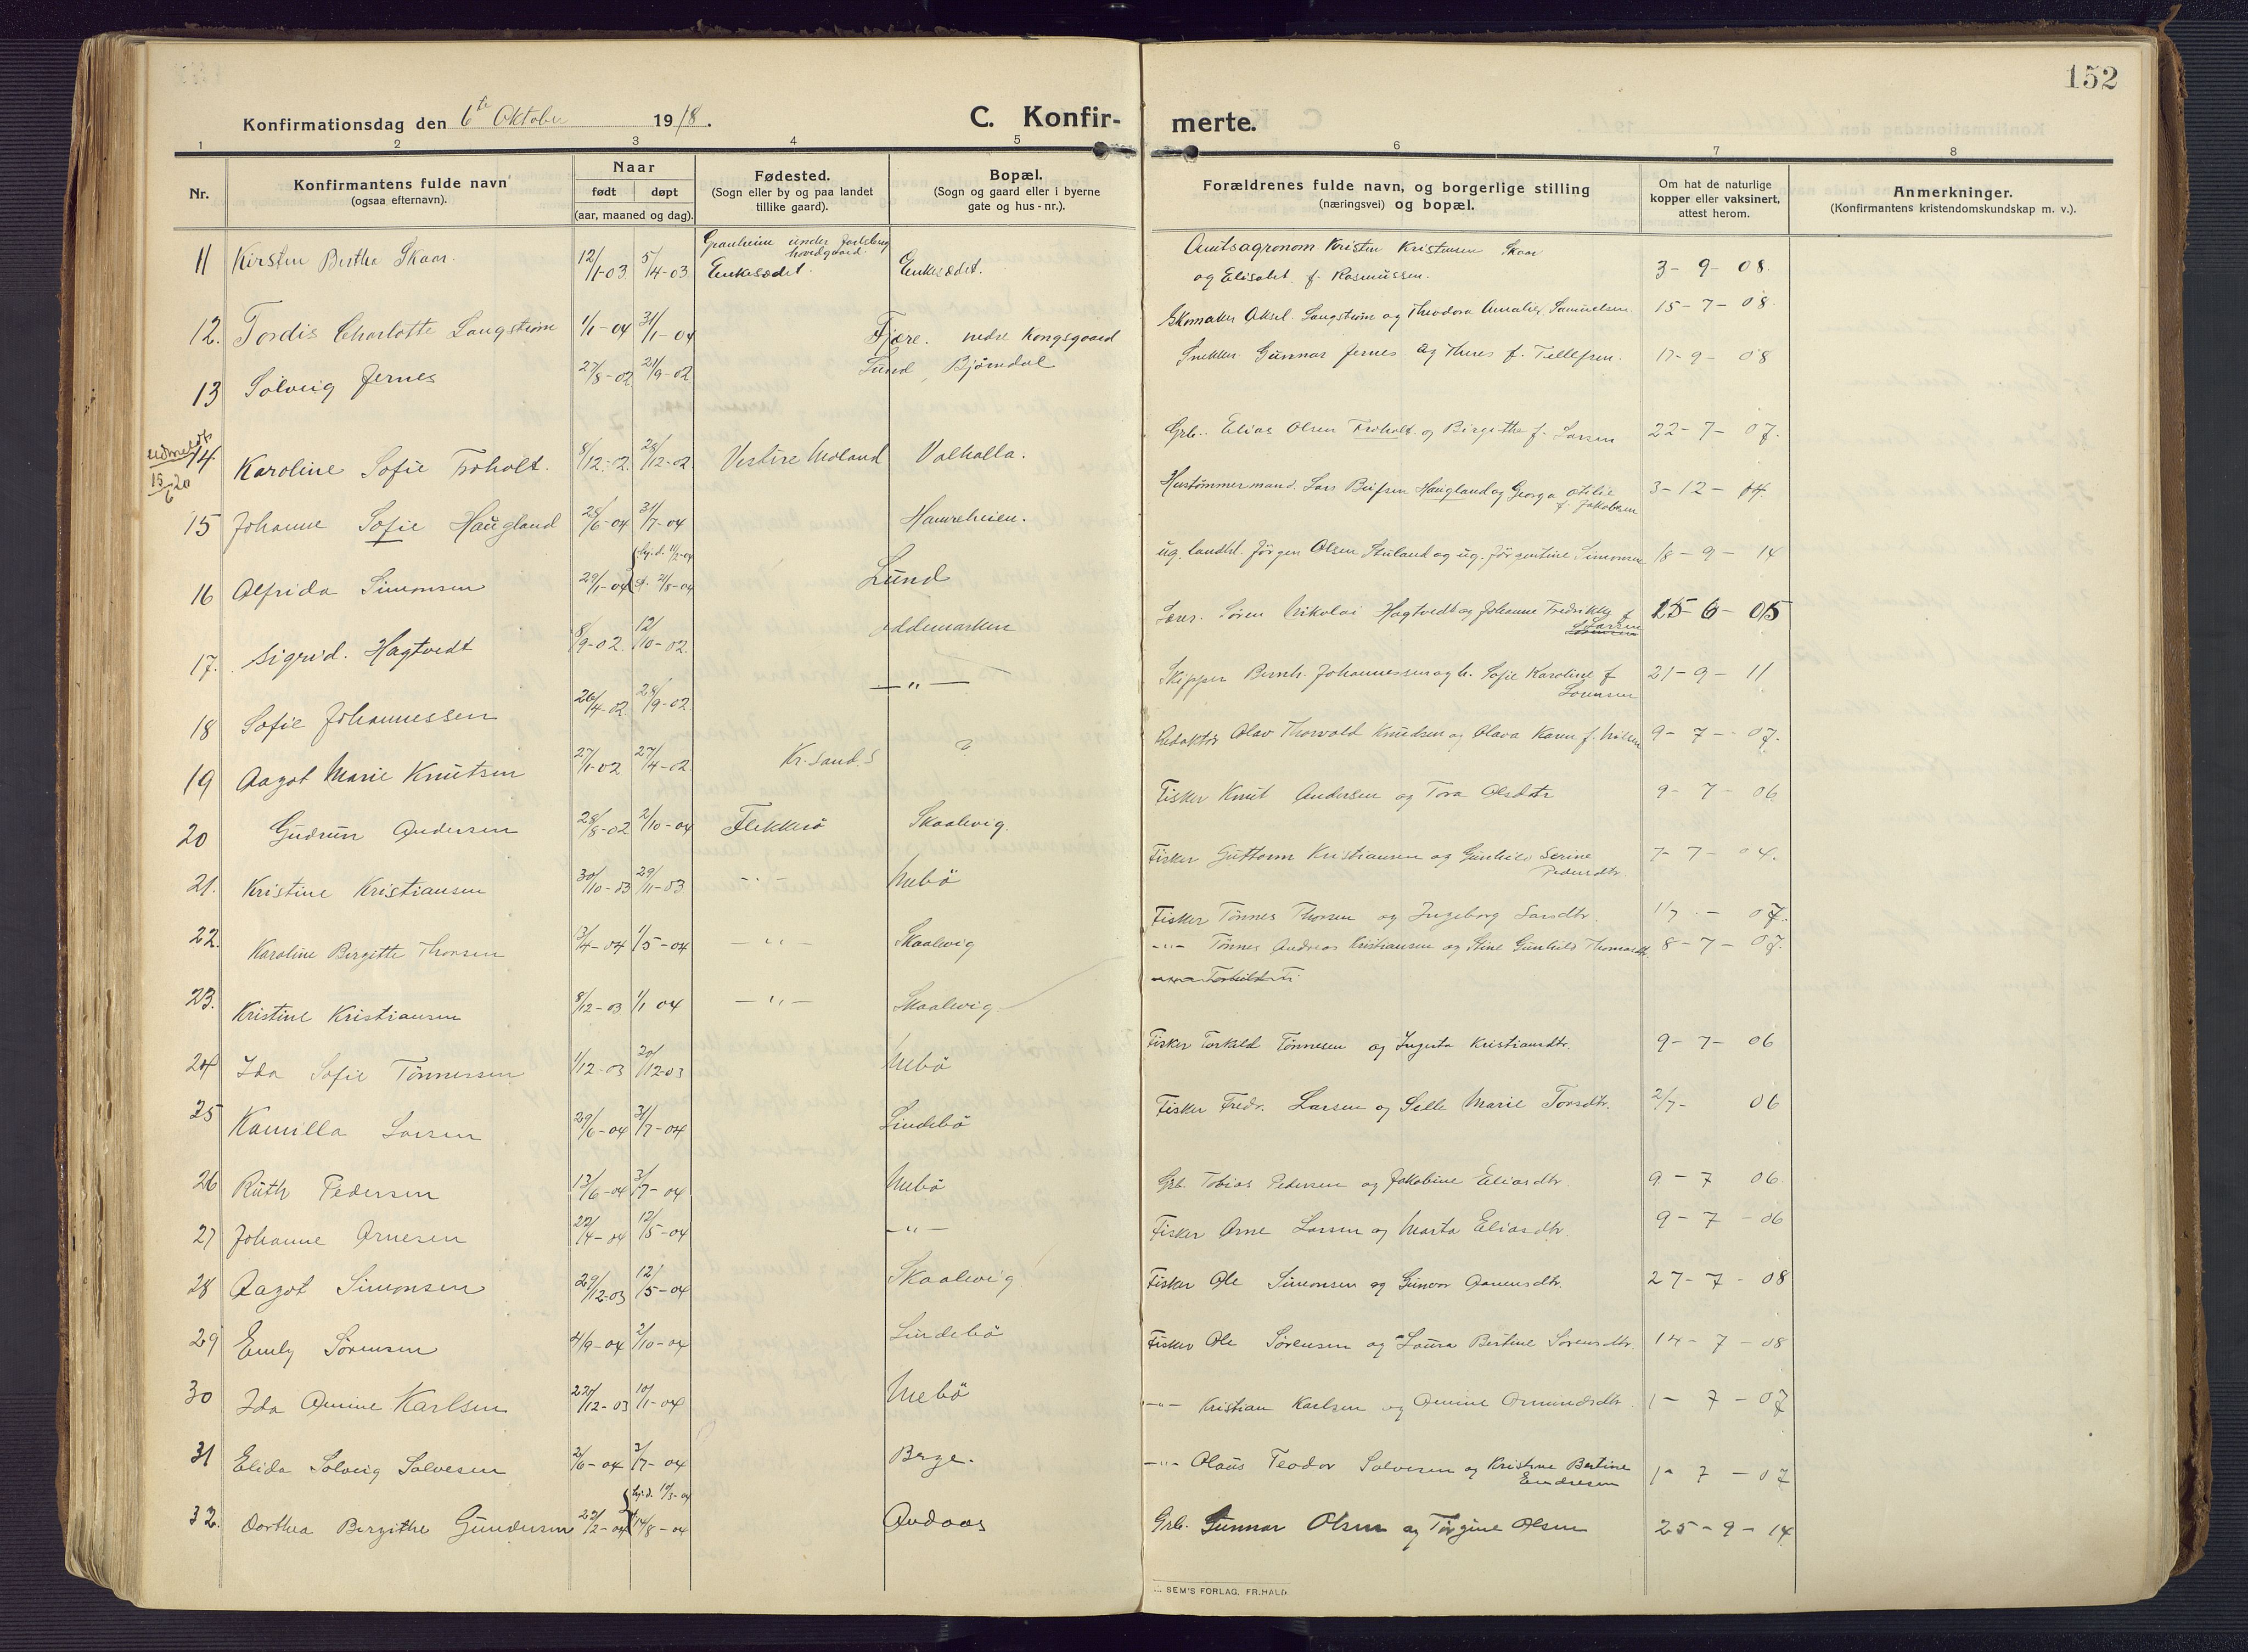 152
Konfirmationsdag den 6te Oktober 1918.
C. Konfir- merte.
1 2 3 4 5 6 7 8
Nr.
Konfirmantens fulde navn
(ogsaa efternavn).
Naar
født døpt
(aar, maaned og dag).
Fødested.
(Sogn eller by og paa landet
tillike gaard).
Bopæl.
(Sogn og gaard eller i byerne
gate og hus-nr.).
Forældrenes fulde navn, og borgerlige stilling
(næringsvei) og bopæl.
Om hat de naturlige
kopper eller vaksinert,
attest herom.
Anmerkninger.
(Konfirmantens kristendomskundskap m. v.).
11 Kirsten Bertha Skaar. 12/1-03 5/4-03 under hovedgaard. Enkesædet. Enkesædet. Amtsagronom Kristen Kristensen Skaar
og Elisabet f. Rasmussen. 3-9-08.
12. Tordis Charlotte Langstrøm 1/1-04 31/1-04 Fjære. nedre Kongsgaard Skomaker Aksel Langstrøm og Theodora Amalie Samuelsen 15-7-08.
13 Solveig Jernes 27/8-02 21/9-02 Lund, Bjørndal Snekker Gunnar Jernes og Thores f. Tellefsen. 17-9-08
utmeldt 15/6 20
14 Karoline Sofie Froholt. 8/12-02. 28/12-02. Vestre Moland Valhalla. Grb. Elias Olsen Froholt og Birgithe f. Larsen 22-7-07.
15 Johanne Sofie Haugland 28/6-04 31/7-04 Hamreheien. Hustømmermand. Lars Haugland og Georga Otilie
f. Jakobsen 3-12-14
16 Alfrida Simonsen 29/1-04 hj.d. 11/2-04 d. 21/8-04 Lund ug. landhl. Jørgen Olsen Stuland og ug. Jørgentine Simonsen 18-9-14
17. Sigrid. Hagtvedt 8/9-02. 12/10-02. Oddemarken Søren Nikolai Hagtvedt og Johanne Fredrikke f
Larsen 25-6-05
18 Sofie Johannessen 26/4-02 28/9-02 —"— Skipper Bernh. Johannessen og h. Sofie Karoline f
Sørensen 21-9-11
19 Aagot Marie Knutsen 27/1-02 27/4-02. Kr.sand.S ? Redaktør Olav Thorvald Knudsen og Olava Karen f. Nilsen 9-7-07.
20 Gudrun Andersen 28/8-02 2/10-04 Flekkerø Skaalevig. Fisker Knut Andersen og Tora Olsdatr 9-7-06
21. Kristine Kristiansen 30/10-03 29/11-03 -"- Mebø Fisker Guttorm Kristiansen og Gunhild Serine
Pedersdtr. 7-7-04.
22. Karoline Birgitte Thorsen 3/4-04 1/5-04 —"— Skaalevig Fisker Tønnes Thorsen og Ingeborg Larsdtr. 1/7.-07.
23. Kristine Kristiansen 8/12-03 1/1 04 —"— Skaalevig -"- Tønnes Andreas Kristiansen og Stine Gunhild Thomasdtr. 8-7-07.
24 Ida Sofie Tønnessen 1/12-03 20/12-03 Mebø Fisker Torkild Tønnesen og Ingerta Kristiansdtr. 9-7-06
25 Kamilla Larsen 29/6-04 31/7-04 Lindebø Fisker Fredr. Larsen og Selle Marie Torsdtr. 2/7- 06
26 Ruth Pedersen 13/6-04 3/7-04 Mebø Grb. Tobias Pedersen og Jakobine Eliasdtr. 9-7 06.
27 Johanne Arnesen 22/4-04 12/5-04 -"- Fisker Arne Larsen og Marta Eliasdtr. 9-7-06
28 Aagot Simonsen 29/12-03 12/5-04 Skaalevig Fisker Ole Simonsen og Gunvor Aanensdtr. 27-7-08
29 Emly Sørensen 4/9-04 2/10-04 Lindebø Fisker Ole Sørensen og Laura Bertine Sørensdtr. 14-7-08
30 Ida Amine Karlsen 22/12-03 10/1-04 Mebø -"- Kristian Karlsen og Amine Osmundsdtr. 1-7-07
31 Elida Solveig Salvesen 2/6-04 3/7-04 Berge. -"- Olaus Teodor Salvesen og Kristine Bertine
Endresen 1-7-07
32. Dorthea Birgithe Gundersen 22/2-04 hj.d. 10/3-04 14/8-04 Andaas Grb. Gunnar Olsen og Tørgine Olsen 25-9-14
SEM'S FORLAG, FR.HALD.